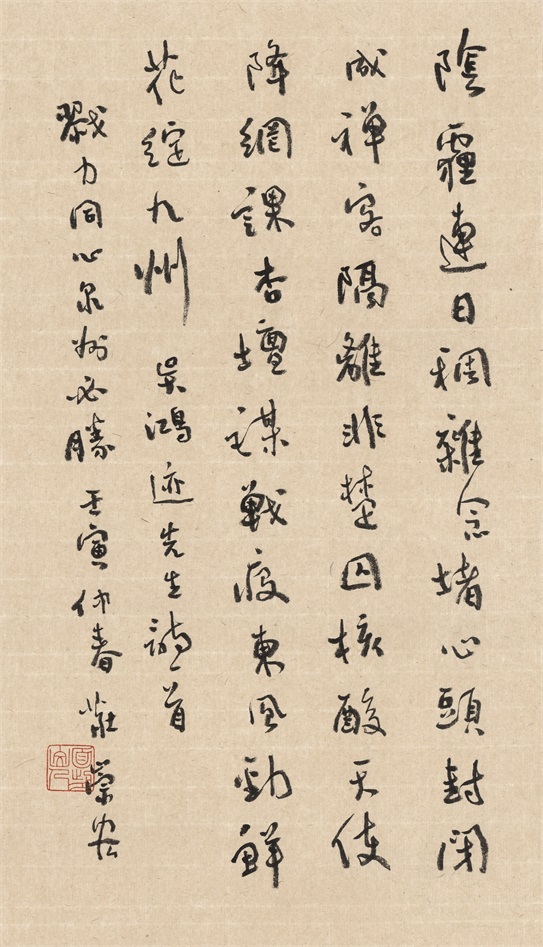 陰霾連日稠雜念堵心頭封閉
成禪客隔離非楚囚核酸天使
降網課杏壇謀戰疫東風勁鮮
花綻九州 吴鴻迹先生詩一首
戮力同心泉州必勝 壬寅仲春 莊榮